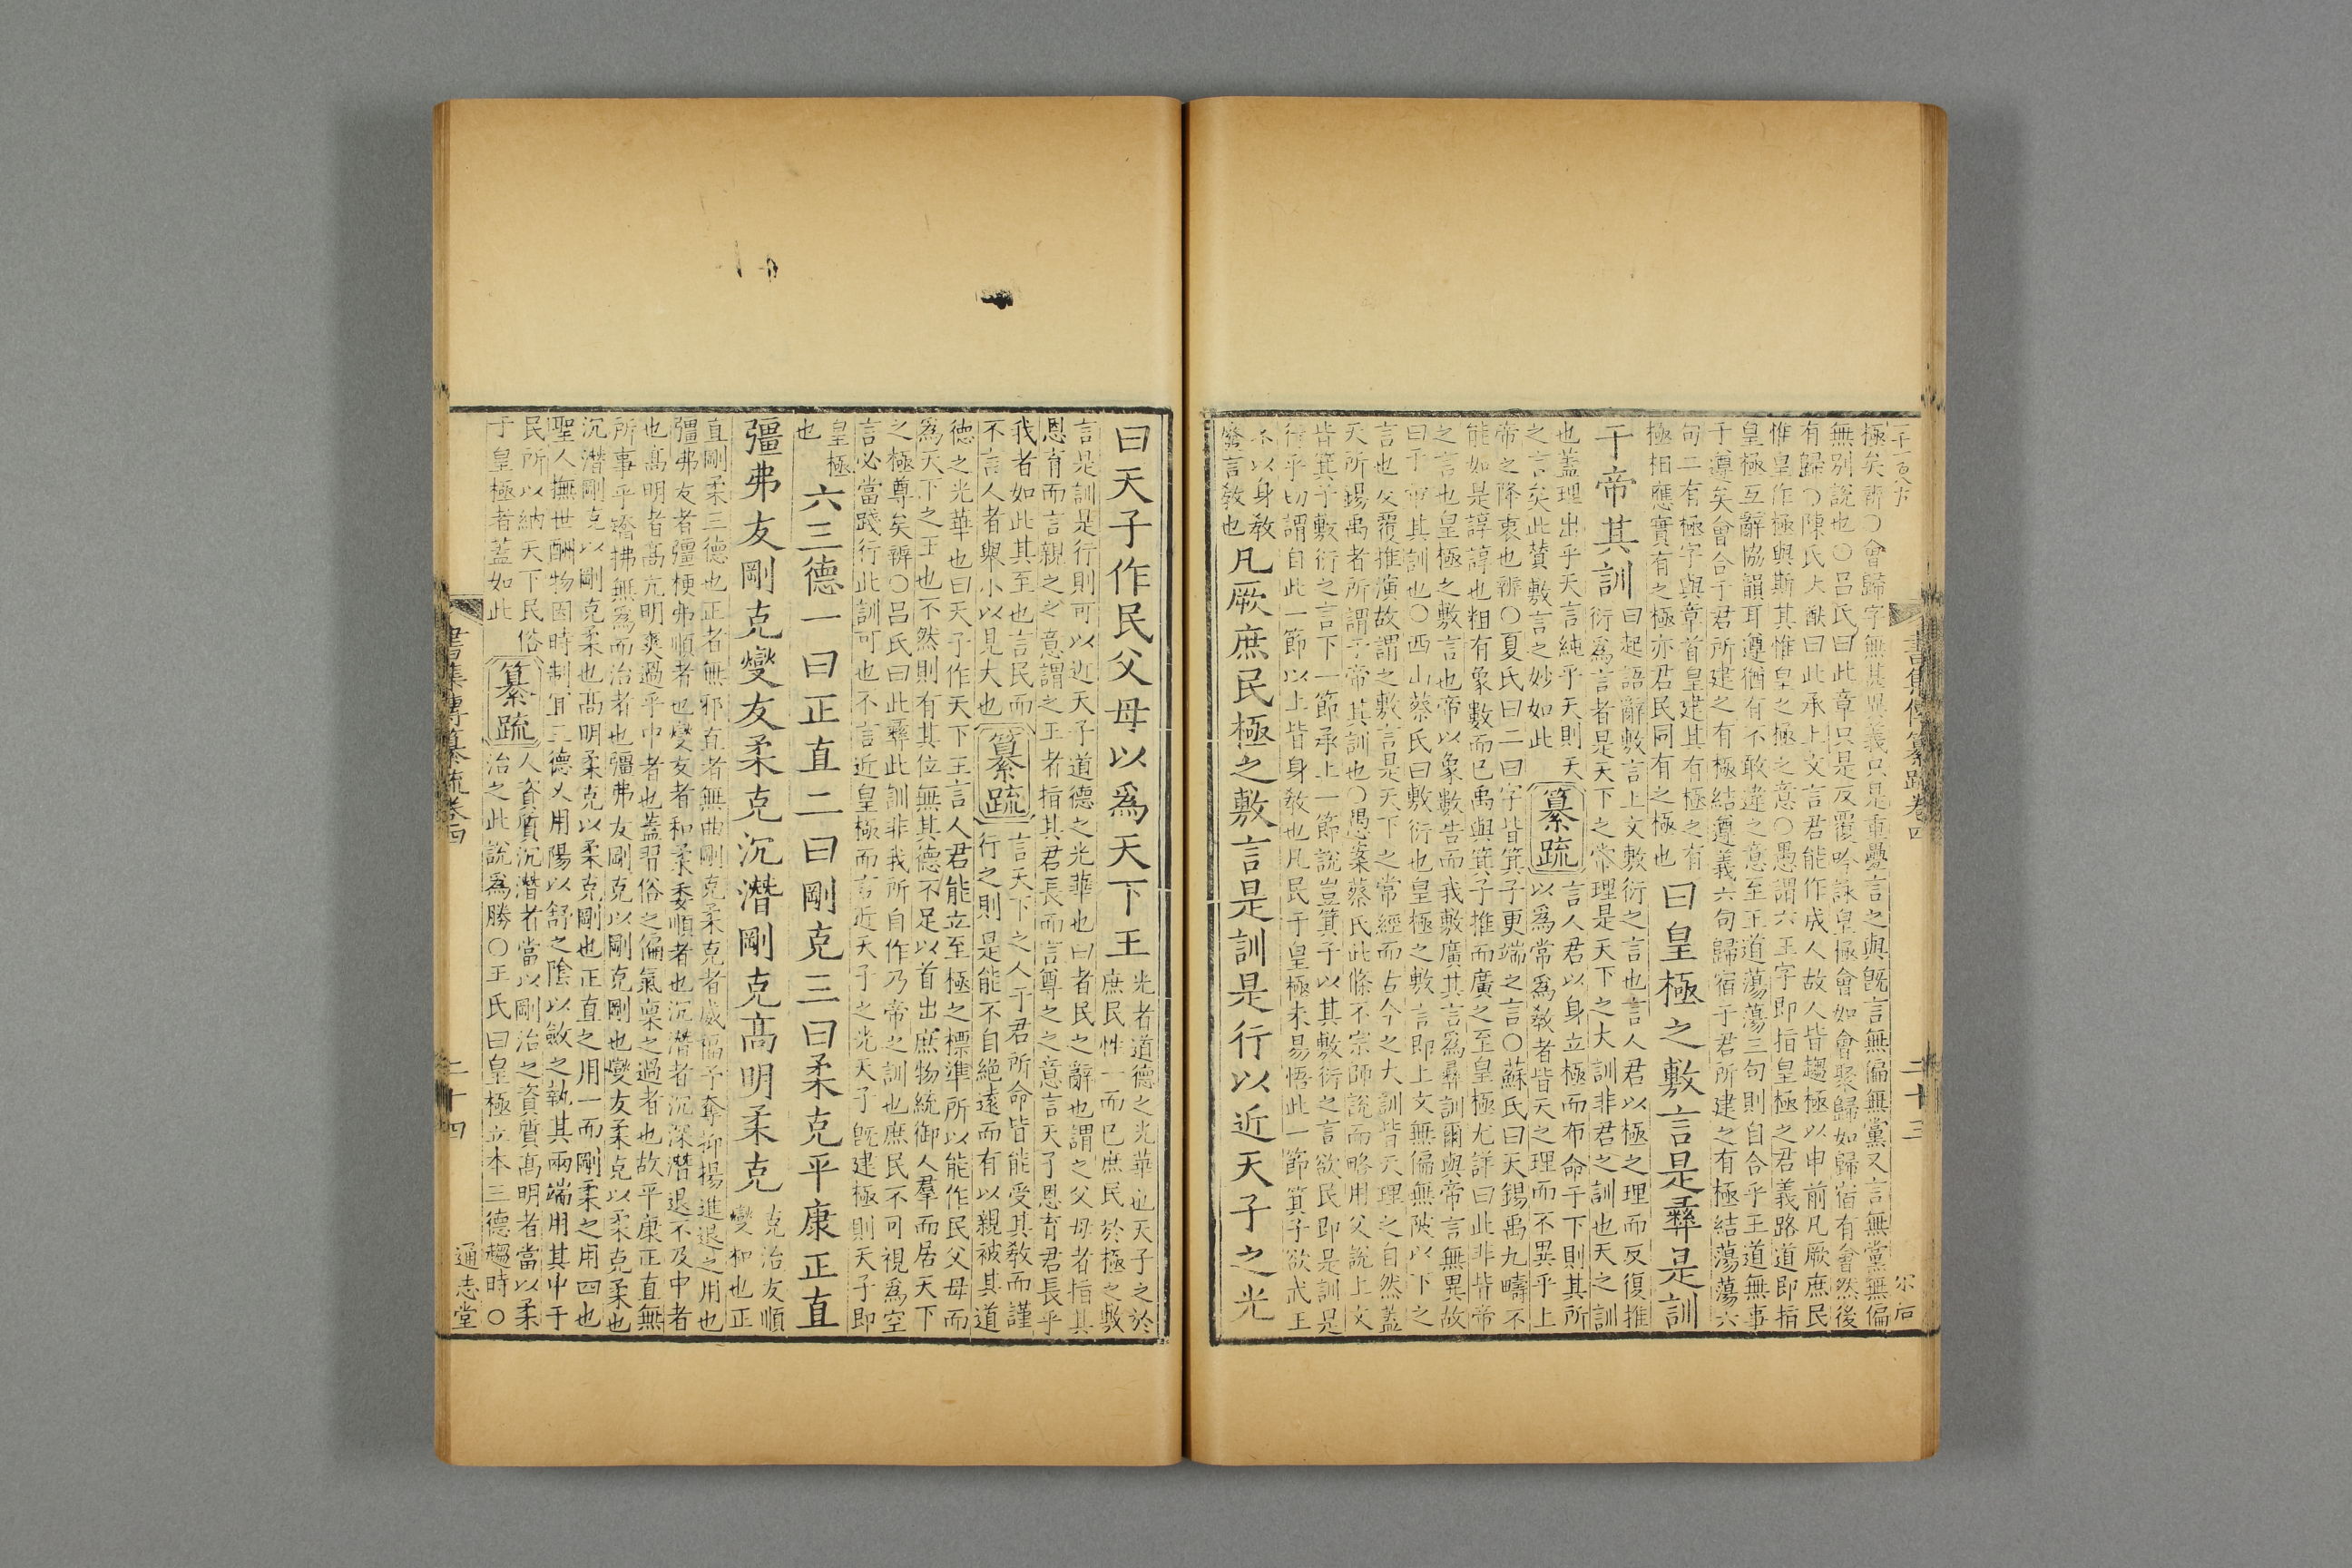 極矣辭〇會歸字無甚異義只是重疊言之與旣言無偏無黨又言無黨無偏
無別說也〇呂氏曰此章只是反覆吟詠皇極會如會聚歸如歸宿有會然後
有歸〇陳氏大猷曰此承上文言君能作成人故人皆趨極以申前凡厥庶民
惟皇作極與斯其惟皇之極之意〇愚謂六王字即指皇極之君義路道即指
皇極互辭協韻耳遵猶有不敢違之意至王道蕩蕩三句則自合乎王道無事
于遵矣會合于君所建之有極結遵義六句歸宿于君所建之有極結蕩蕩六
句二有極字與章首皇建其有極之有
極相應實有之極亦君民同有之極也
曰皇極之敷言是彝是訓
于帝其訓
曰起語辭敷言上文敷衍之言也言人君以極之理而反復推
衍爲言者是天下之常理是天下之大訓非君之訓也天之訓
也蓋理出乎天言純乎天則天
之言矣此贊敷言之妙如此
纂疏
言人君以身立極而布命于下則其所
以爲常爲敎者皆天之理而不異乎上
帝之降衷也辨〇夏氏曰二曰字皆箕子更端之言〇蘇氏曰天錫禹九疇不
能如是諄諄也粗有象數而已禹與箕子推而廣之至皇極尤詳曰此非皆帝
之言也皇極之敷言也帝以象數告而我敷廣其言爲彝訓爾與帝言無異故
曰于帝其訓也〇西山蔡氏曰敷衍也皇極之敷言即上文無偏無陂以下之
言也反覆推演故謂之敷言是天下之常經而古今之大訓皆天理之自然蓋
天所錫禹者所謂于帝其訓也〇愚案蔡氏此條不宗師說而略用父說上文
皆箕子敷衍之言下一節承上一節說豈箕子以其敷衍之言欲民即是訓是
行乎切謂自此一節以上皆身敎也凡民于皇極未易悟此一節箕子欲武王
不以身敎
發言敎也
凡厥庶民極之敷言是訓是行以近天子之光
書集傳纂疏卷四
二十三
曰天子作民父母以爲天下王
光者道德之光華也天子之於
庶民性一而已庶民於極之敷
言是訓是行則可以近天子道德之光華也曰者民之辭也謂之父母者指其
恩育而言親之之意謂之王者指其君長而言尊之之意言天子恩育君長乎
我者如此其至也言民而
不言人者舉小以見大也
纂疏
言天下之人于君所命皆能受其敎而謹
行之則是能不自絕遠而有以親被其道
德之光華也曰天子作天下王言人君能立至極之標準所以能作民父母而
爲天下之王也不然則有其位無其德不足以首出庶物統御人羣而居天下
之極尊矣辨〇呂氏曰此彝此訓非我所自作乃帝之訓也庶民不可視爲空
言必當踐行此訓可也不言近皇極而言近天子之光天子旣建極則天子即
皇極
也
六三德一曰正直二曰剛克三曰柔克平康正直
彊弗友剛克燮友柔克沉潛剛克高明柔克
克治友順
燮和也正
直剛柔三德也正者無邪直者無曲剛克柔克者威福予奪抑揚進退之用也
彊弗友者彊梗弗順者也燮友者和柔委順者也沉潛者沉深潛退不及中者
也高明者高亢明爽過乎中者也蓋習俗之偏氣禀之過者也故平康正直無
所事乎矯拂無爲而治者也彊弗友剛克以剛克剛也燮友柔克以柔克柔也
沉潛剛克以剛克柔也高明柔克以柔克剛也正直之用一而剛柔之用四也
聖人撫世酬物因時制宜三德乂用陽以舒之陰以斂之執其兩端用其中于
民所以納天下民俗
于皇極者蓋如此
纂疏
人資質沉潛者當以剛治之資質高明者當以柔
治之此說爲勝〇王氏曰皇極立本三德趨時〇
書集傳纂疏卷四
二十四
通志堂